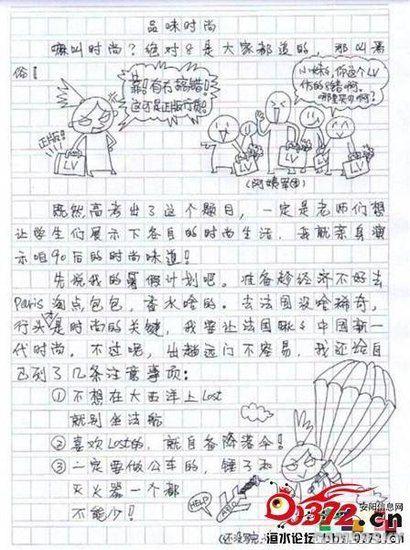 品味时尚
嘛叫时尚？绝对8是大家都追的，那叫落
俗！
靠！有冇搞错！
这还是正版行货！
小妹，你这个LV
仿的8错啊，
哪里买的啊？
正版！
LV
LV
LV
LV
(阿姨军团)
既然高考出了这个题目，一定是老师们想
让学生们展示下各自的时尚生活，我就亲身演
示咱90后的时尚味道！
先说我的暑假计划吧。准备趁经济不好去
Paris淘点包包，香水啥的。去法国没啥稀奇，
行头才是时尚的关键，我要让法国瞅s中国新一
代时尚。不过呢，出趟远门不容易，我还给自
己列了几条注意事项：
①不想在大西洋上Lost
就别坐法航
②喜欢Lost的，就自备降落伞！
③一定要做公车的，锤子和
灭火器一个都
不能少！
HELP
(还没完
0372.cn
安阳信息网
洹水论坛 bbs.0372.cn